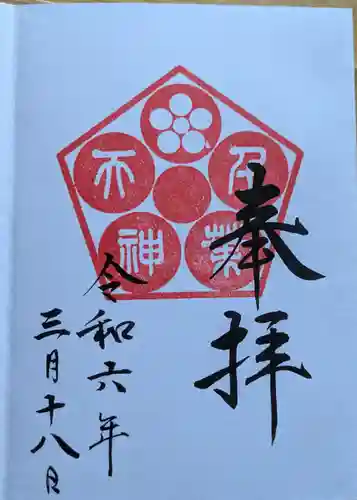 奉拝
天神
令和六年
三月十八日